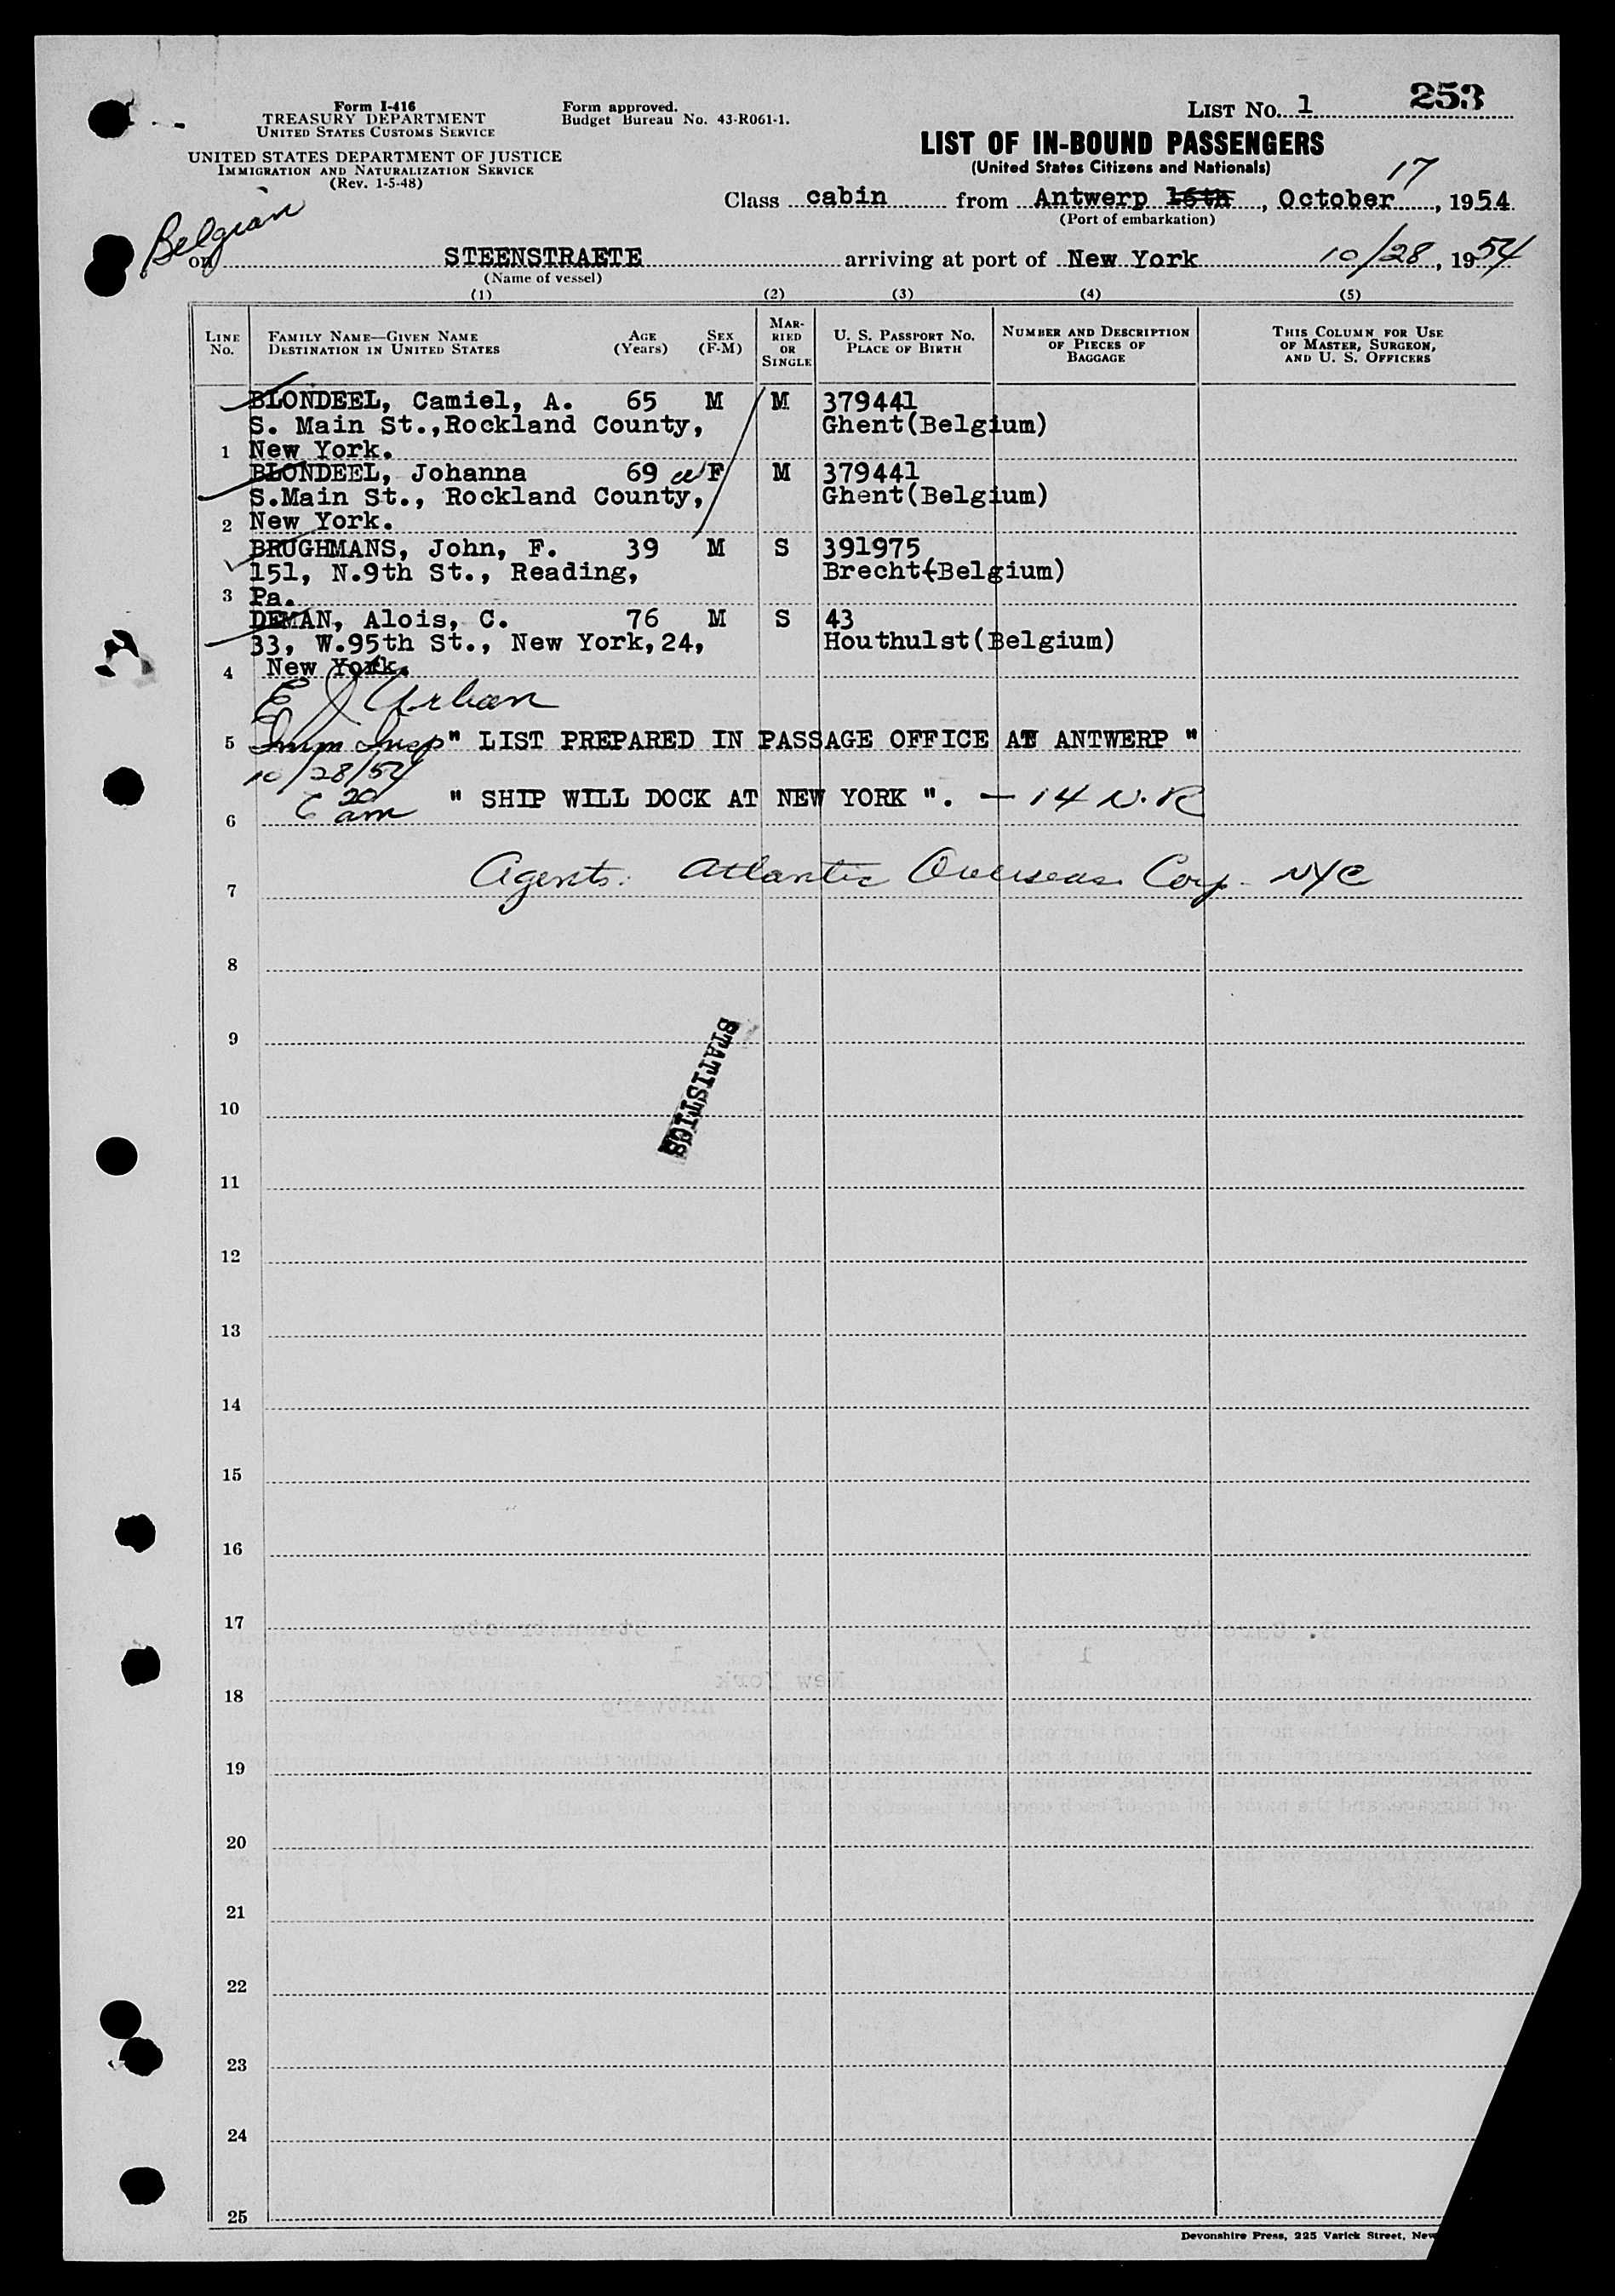 253
Form I-416
TREASURY DEPARTMENT
UNITED STATES CUSTOMS SERVICE
UNITED STATES DEPARTMENT OF JUSTICE
IMMIGRATION AND NATURALIZATION SERVICE
(Rev. 1-5-48)
Form approved.
Budget Bureau No. 43-R061-1.
LIST No. 1
LIST OF IN-BOUND PASSENGERS
(United States Citizens and Nationals)
17
Class cabin from Antwerp 16th, October, 1954
(Port of embarkation)
Belgian
on STEENSTRAETE arriving at port of New York 10/28, 1954
(Name of vessel)
(1) (2) (3) (4) (5)
LINE No. FAMILY NAME—GIVEN NAME DESTINATION IN UNITED STATES AGE (Years) SEX (F-M) MARRIED OR SINGLE U. S. PASSPORT NO. PLACE OF BIRTH NUMBER AND DESCRIPTION OF PIECES OF BAGGAGE THIS COLUMN FOR USE OF MASTER, SURGEON, AND U. S. OFFICERS
BLONDEEL, Camiel, A. 65 M M 379441
S. Main St.,Rockland County, Ghent(Belgium)
1 New York.
BLONDEEL, Johanna 69 F M 379441
S.Main St., Rockland County, Ghent(Belgium)
2 New York.
BRUGHMANS, John, F. 39 M S 391975
151, N.9th St., Reading, Brecht(Belgium)
3 Pa.
DEMAN, Alois, C. 76 M S 43
33, W.95th St., New York,24, Houthulst(Belgium)
4 New York.
E J Urban
5 Imm Insp " LIST PREPARED IN PASSAGE OFFICE AT ANTWERP "
10/28/54
6 20 am " SHIP WILL DOCK AT NEW YORK ". — 14 N.R
6
7 Agents: Atlantic Overseas Corp. NYC
8
9
STATISTICS
10
11
12
13
14
15
16
17
18
19
20
21
22
23
24
25
Devonshire Press, 225 Varick Street, New